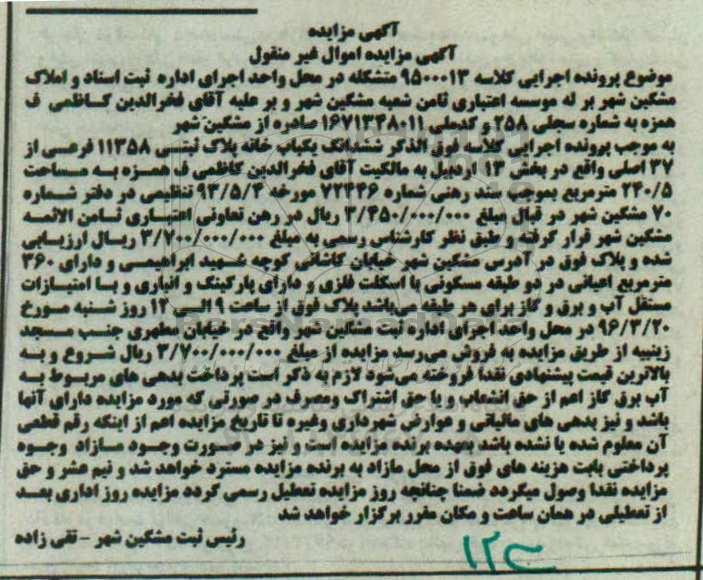 آگهی مزایده
آگهی مزایده اموال غیر منقول
موضوع پرونده اجرایی کلاسه ۹۵۰۰۰۱۳ متشکله در محل واحد اجرای اداره ثبت اسناد و املاک
مشگین شهر بر له موسسه اعتباری ثامن شعبه مشگین شهر و بر علیه آقای فخرالدین کاظمی ف
همزه به شماره سجلی ۲۵۸ و کدملی ۱۶۷۱۳۴۸۰۱۱ صادره از مشگین شهر
به موجب پرونده اجرایی کلاسه فوق الذکر ششدانگ یکباب خانه پلاک ثبتی ۱۱۳۵۸ فرعی از
۳۷ اصلی واقع در بخش ۱۳ اردبیل به مالکیت آقای فخرالدین کاظمی ف همزه به مساحت
۲۴۰/۵ مترمربع بموجب سند رهنی شماره ۷۲۴۴۶ مورخه ۹۳/۵/۴ تنظیمی در دفتر شماره
۷۰ مشگین شهر در قبال مبلغ ۳/۴۵۰/۰۰۰/۰۰۰ ریال در رهن تعاونی اعتباری ثامن الائمه
مشگین شهر قرار گرفته و طبق نظر کارشناس رسمی به مبلغ ۳/۷۰۰/۰۰۰/۰۰۰ ریال ارزیابی
شده و پلاک فوق در آدرس مشگین شهر خیابان کاشانی کوچه شهید ابراهیمی و دارای ۳۶۰
مترمربع اعیانی در دو طبقه مسکونی با اسکلت فلزی و دارای پارکینگ و انباری و با امتیازات
مستقل آب و برق و گاز برای هر طبقه می‌باشد پلاک فوق از ساعت ۹ الی ۱۲ روز شنبه مورخ
۹۶/۳/۲۰ در محل واحد اجرای اداره ثبت مشگین شهر واقع در خیابان مطهری جنب مسجد
زینبیه از طریق مزایده به فروش می‌رسد مزایده از مبلغ ۳/۷۰۰/۰۰۰/۰۰۰ ریال شروع و به
بالاترین قیمت پیشنهادی نقدا فروخته می‌شود لازم به ذکر است پرداخت بدهی های مربوط به
آب برق گاز اعم از حق انشعاب و یا حق اشتراک ومصرف در صورتی که مورد مزایده دارای آنها
باشد و نیز بدهی های مالیاتی و عوارض شهرداری وغیره تا تاریخ مزایده اعم از اینکه رقم قطعی
آن معلوم شده یا نشده باشد بعهده برنده مزایده است و نیز در صورت وجود مازاد وجوه
پرداختی بابت هزینه های فوق از محل مازاد به برنده مزایده مسترد خواهد شد و نیم عشر و حق
مزایده نقدا وصول میگردد ضمنا چنانچه روز مزایده تعطیل رسمی گردد مزایده روز اداری بعد
از تعطیلی در همان ساعت و مکان مقرر برگزار خواهد شد
رئیس ثبت مشگین شهر - تقی زاده